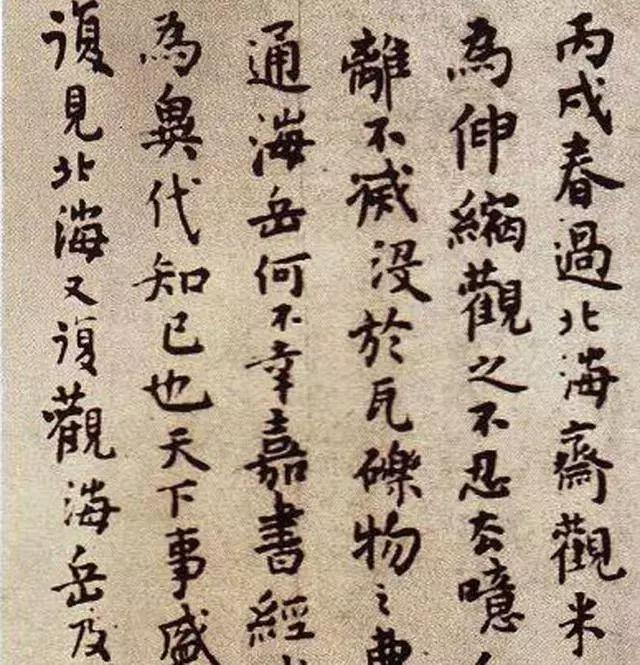 丙戌春過北海齋觀米
為伸縮觀之不忍去噫
離不滅沒於瓦礫物之
通海岳何不幸嘉書經
為異代知已也天下事盛
復見北海又復觀海岳及